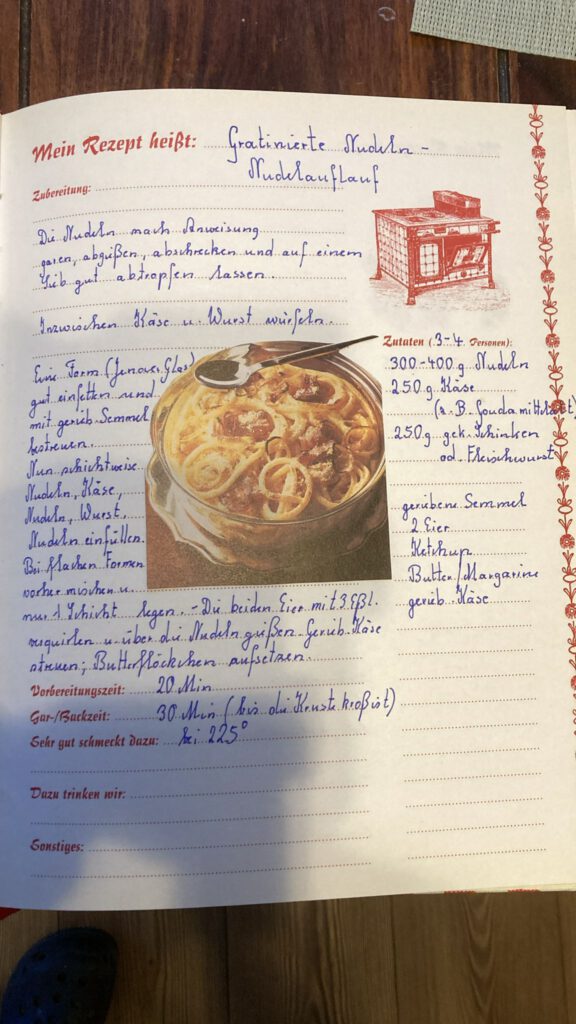 Mein Rezept heißt: Gratinierte Nudeln -
Nudelauflauf
Zubereitung:
Die Nudeln nach Anweisung
garen, abgießen, abschrecken und auf einem
Sieb gut abtropfen lassen.
Inzwischen Käse u. Wurst würfeln.
Eine Form (Jenaer Glas)
gut einfetten und
mit gerieb. Semmel
bestreuen.
Nun schichtweise
Nudeln, Käse,
Nudeln, Wurst,
Nudeln einfüllen.
Bei flachen Formen
vorher mischen u.
nur 1 Schicht legen. - Die beiden Eier mit 3 Eßl.
verquirlen u. über die Nudeln gießen. Gerieb. Käse
streuen; Butterflöckchen aufsetzen.
Vorbereitungszeit: 20 Min
Gar-/Backzeit: 30 Min (bis die Kruste kroß ist)
Sehr gut schmeckt dazu: bei 225°
Dazu trinken wir:
Sonstiges:
Zutaten (3-4 Personen):
300-400 g Nudeln
250 g Käse
(z. B. Gouda mittelalt)
250 g gek. Schinken
od. Fleischwurst
geriebene Semmel
2 Eier
Ketchup
Butter/Margarine
gerieb. Käse